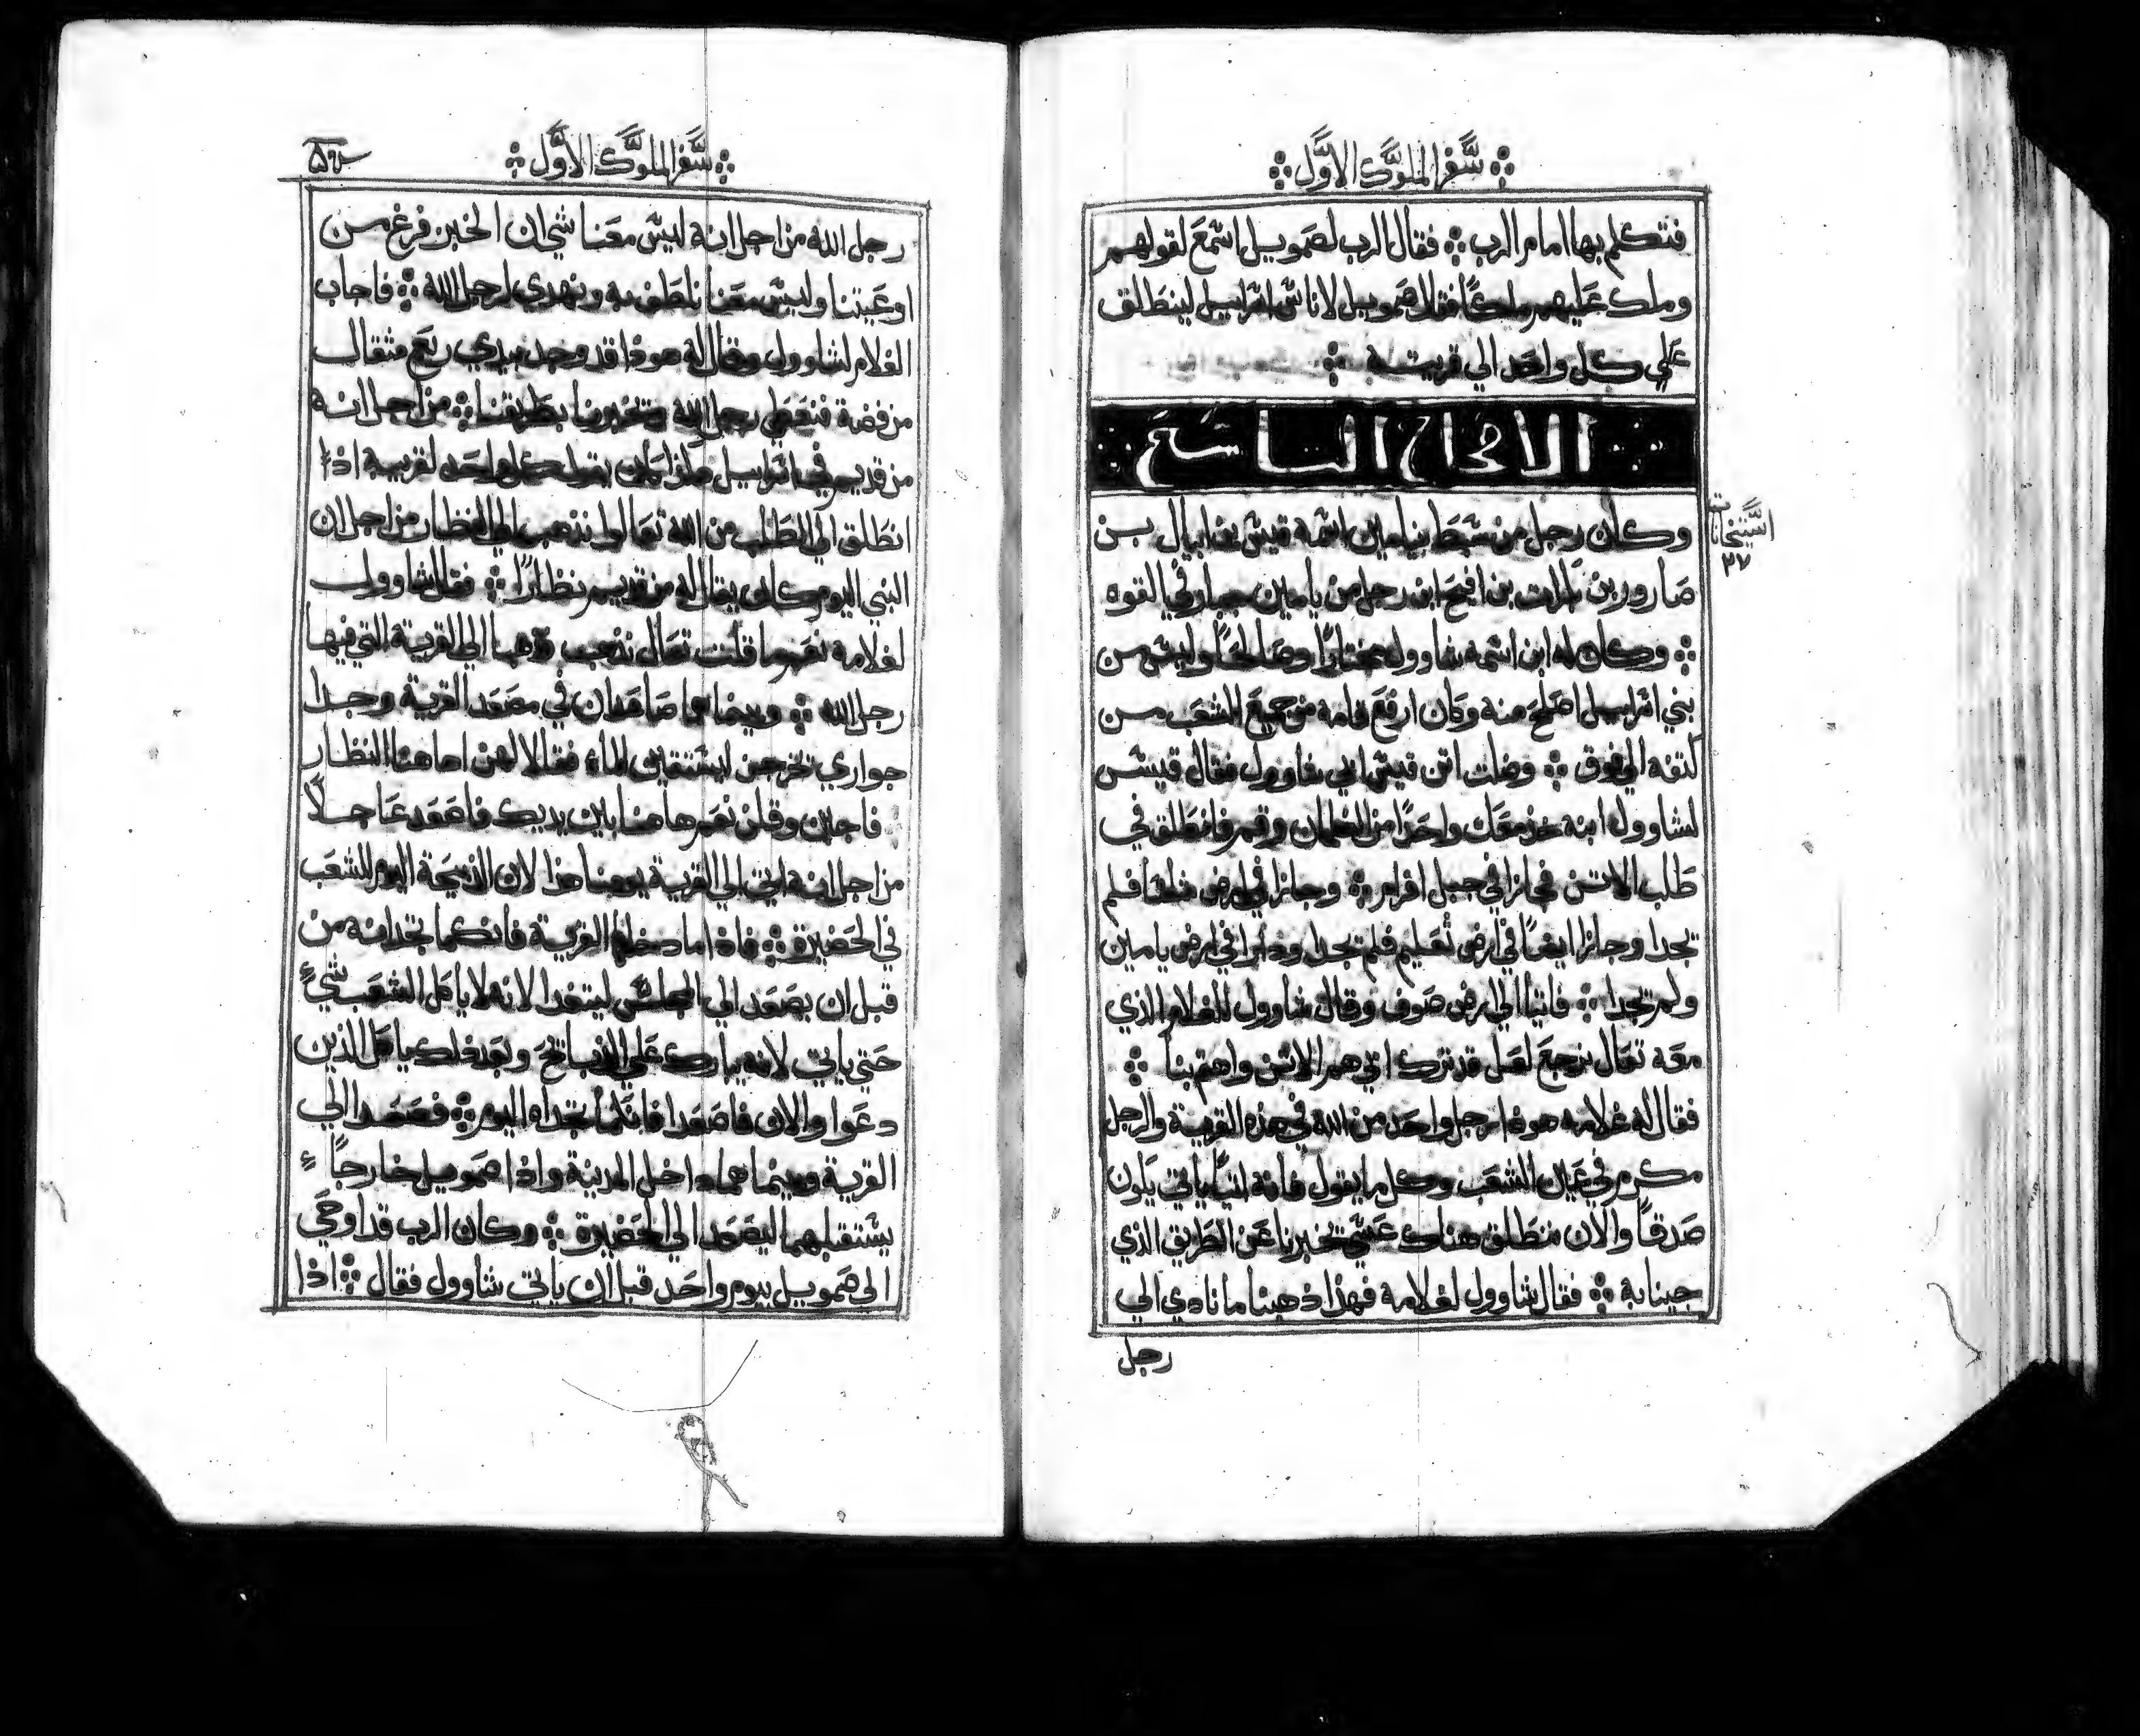 سفر الملوك الاول
فتكلم بها امام الرب فقال الرب لصمويل اسمع لقولهم
وملك عليهم ملكًا فقال صمويل لاناس اسراييل لينطلق
علي كل واحد الي قريته
الاصحاح التاسع
استيخانات
٢٧
وكان رجل من سبط بنيامين اسمه قيس بن ابيال بن
صارور بن بارات بن افيح ابن رجل من يامين جبار في القوه
وكان له ابن اسمه شاوول مختارًا وصالحًا وليس من
بني اسراييل اصلح منه وكان ارفع قامه من جميع الشعب من
كتفه الي فوق وضلت اتن قيس ابي شاوول فقال قيس
لشاوول ابنه خذ معك واحدًا من الغلمان وقم فانطلق في
طلب الاتن فجازا في جبل افرام وجازا في ارض شلشا فلم
تجدا وجازا ايضًا في ارض ثعليم فلم تجدا وجازا في ارض يامين
ولم تجدا فاتيا الي ارض صوف وقال شاوول للغلام الذي
معه تعال نرجع لعل قد ترك ابي هم الاتن واهتم بنا
فقال له غلامه هوذا رجل واحد من الله في هذه القرية والرجل
مكرم في عين الشعب وكل ما يقول فانه اتيًا ياتي يكون
صدقًا والان ننطلق هناك عسي تخبرنا عن الطريق الذي
جينا به فقال شاوول لغلامه فهذا ذهبنا ما نادي الي
رجل
سفر الملوك الاول
رجل الله من اجل انه ليس معنا شي ان الخبز فرغ من
اوعيتنا وليس معنا نلطف به ونهدي لرجل الله فاجاب
الغلام لشاوول وقال له هوذا قد وجد بيدي ربع مثقال
من فضة فنعطي رجل الله وتخبرنا بطريقنا من اجل انه
من قديم في اسراييل هذا كان يقول كل واحد لقريبه اذا
انطلق الي الطلب من الله تعالوا نذهب الي النظار من اجل ان
النبي اليوم كان يقال له من قديم نظارًا فقال شاوول
لغلامه نعم ما قلت تعال نذهب وذهبا الي القرية التي فيها
رجل الله وبينما هما صاعدان في مصعد القرية وجدا
جواري تخرجن ليستقين الماء فقالا لهن اهاهنا النظار
فاجابن وقلن نعم هاهنا بين يديك فاصعد عاجلًا
من اجل انه اتي الي القرية يومنا هذا لان الذبيحة اليوم للشعب
في الحضيرة فاذا ما دخلتما القرية فانكما تجدانه من
قبل ان يصعد الي المجلس ليتغدا لانه لا ياكل الشعب شيء
حتي ياتي لانه يبارك علي الذبايح وبعد ذلك ياكل الذين
دعوا والان فاصعدا فانكما تجداه اليوم فصعدا الي
القرية وبينما هما داخل المدينة واذا صمويل خارجًا
يستقبلهما ليصعد الي الحضيرة وكان الرب قد اوحي
الي صمويل بيوم واحد قبل ان ياتي شاوول فقال اذا